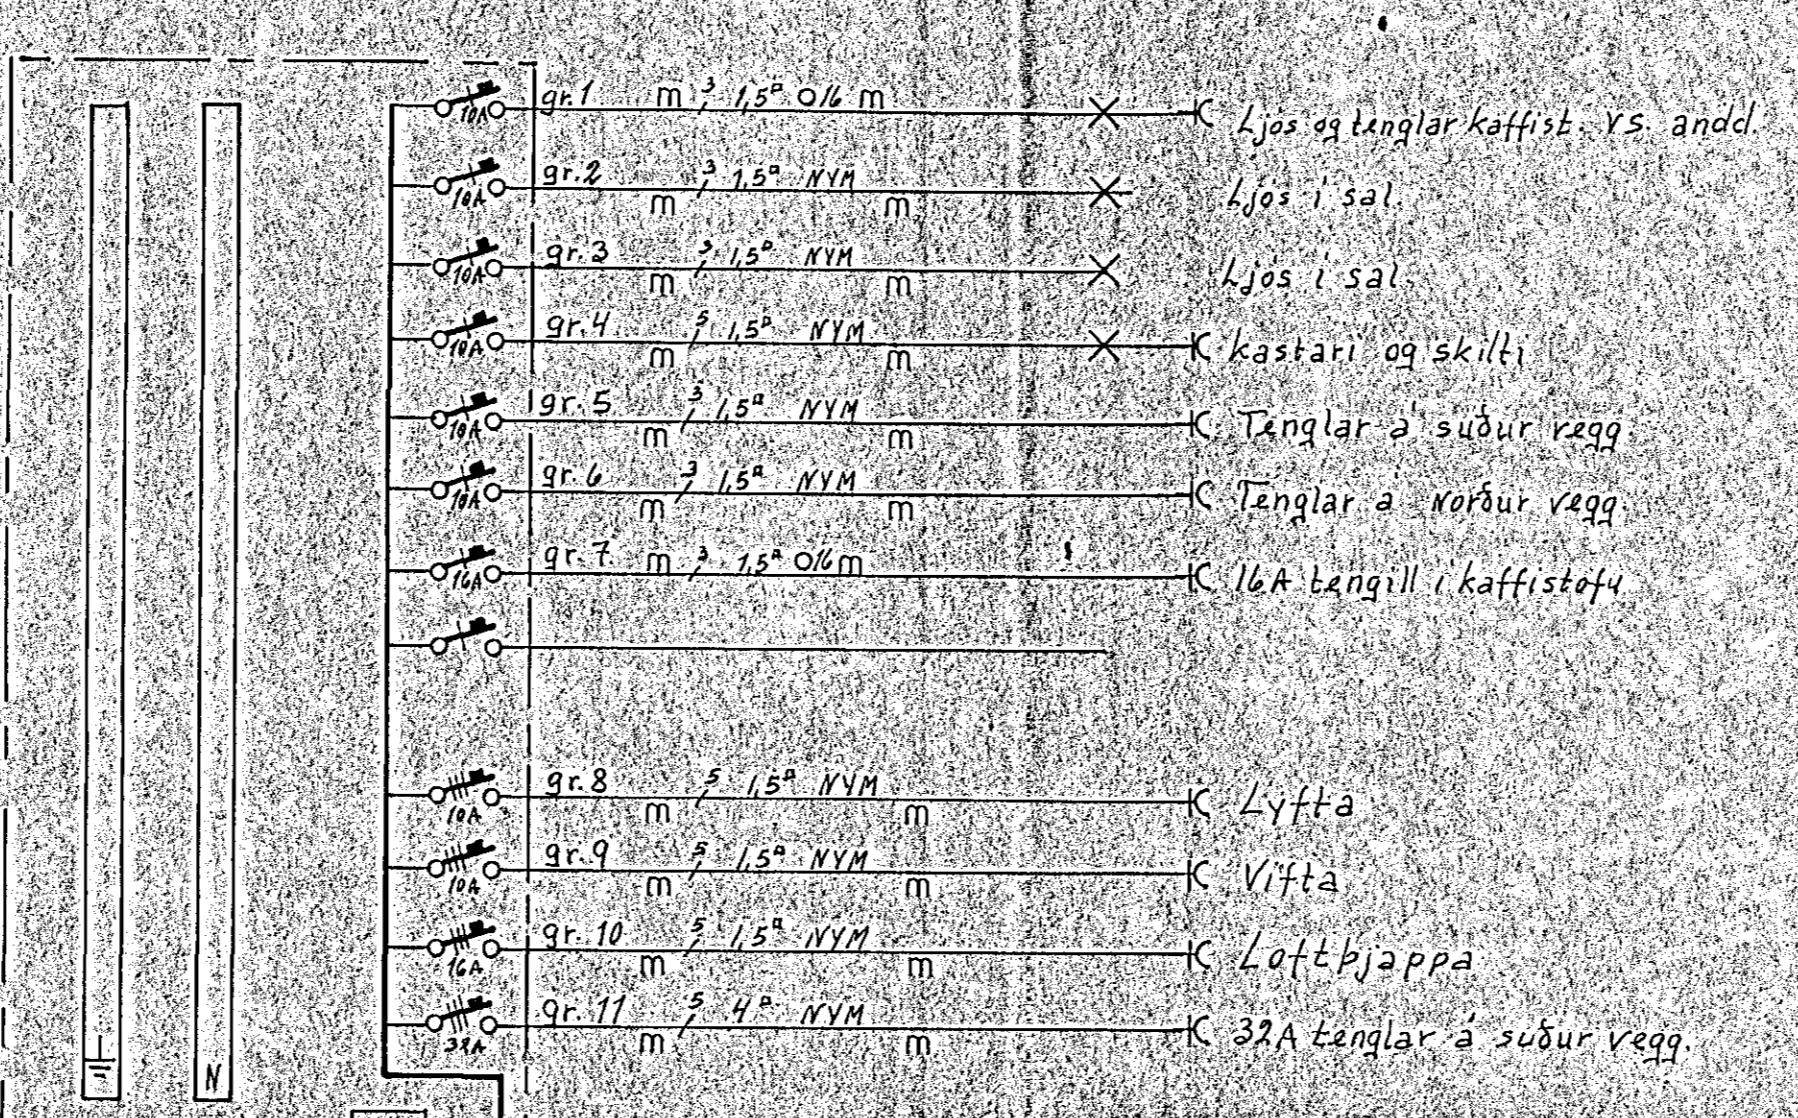 gr.1 m 3 1,5▫ O16 m Ljos og tenglar kaffist. VS. andd.
10A
gr.2 3 1,5▫ NYM Ljos í sal.
10A m m
gr.3 3 1,5▫ NYM Ljós í sal.
10A m m
gr.4 5 1,5▫ NYM kastari og skilti
10A m m
gr.5 3 1,5▫ NYM Tenglar á suður vegg.
10A m m
gr.6 3 1,5▫ NYM Tenglar á Norður vegg.
10A m m
gr.7 m 3 1,5▫ O16 m 16A tengill í kaffistofu
16A
gr.8 5 1,5▫ NYM Lyfta
10A m m
gr.9 5 1,5▫ NYM Vifta
10A m m
gr.10 5 1,5▫ NYM Loftþjappa
16A m m
gr.11 5 4▫ NYM 32A tenglar á suður vegg.
32A m m
N